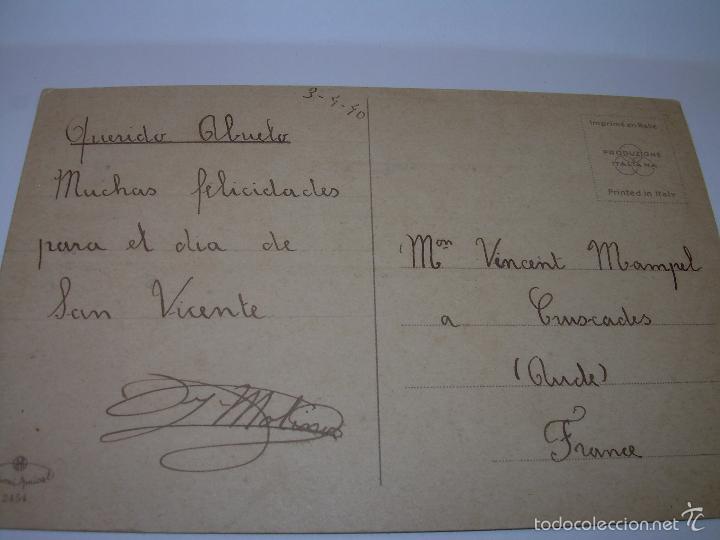 3-4-40
Querido Abuelo
Muchas felicidades
para el dia de
San Vicente
Imprimé en Italie
PRODUZIONE
ITALIANA
Printed in Italy
Mon Vincent Mampel
a Cruscades
(Aude)
France
2454
todocoleccion.net